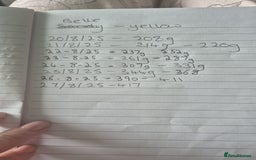 Belle
- yellow
20/8/25 - 208g
21/8/25 - 214g - 220g
22-8/25 = 237g - 252g
23-8-25 - 261g - 287g
24-8-25 - 307g - 331g
25/8/25 - 344g - 368
26-8-25 - 390 - 411
27/8/25 - 417